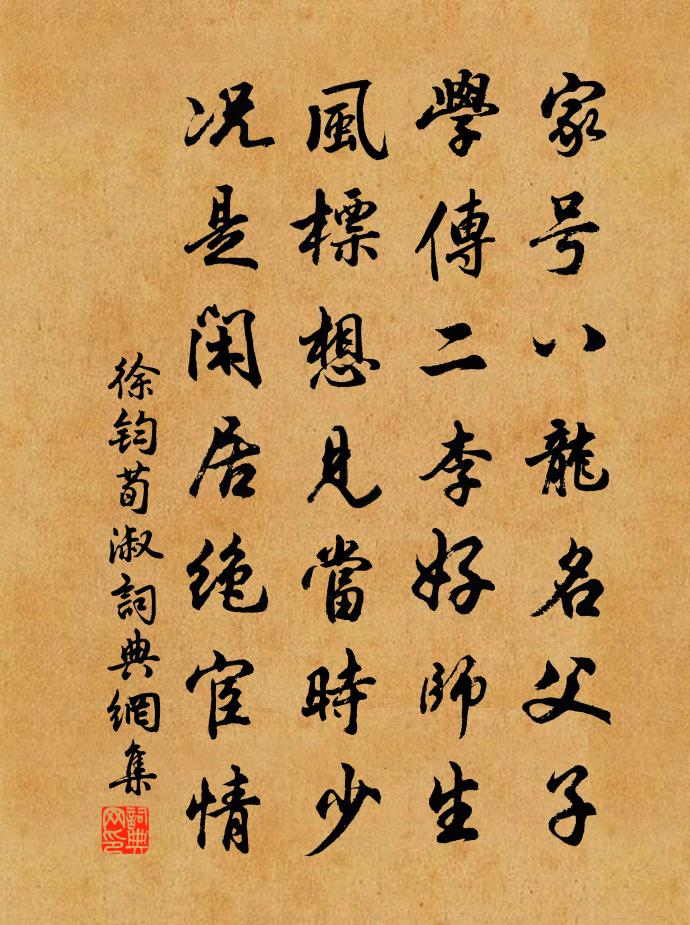 家号八龍名父子
學傳二李好師生
風標想見當時少
况是闲居绝宦情
徐钧荀淑詞典網集
詞典网印